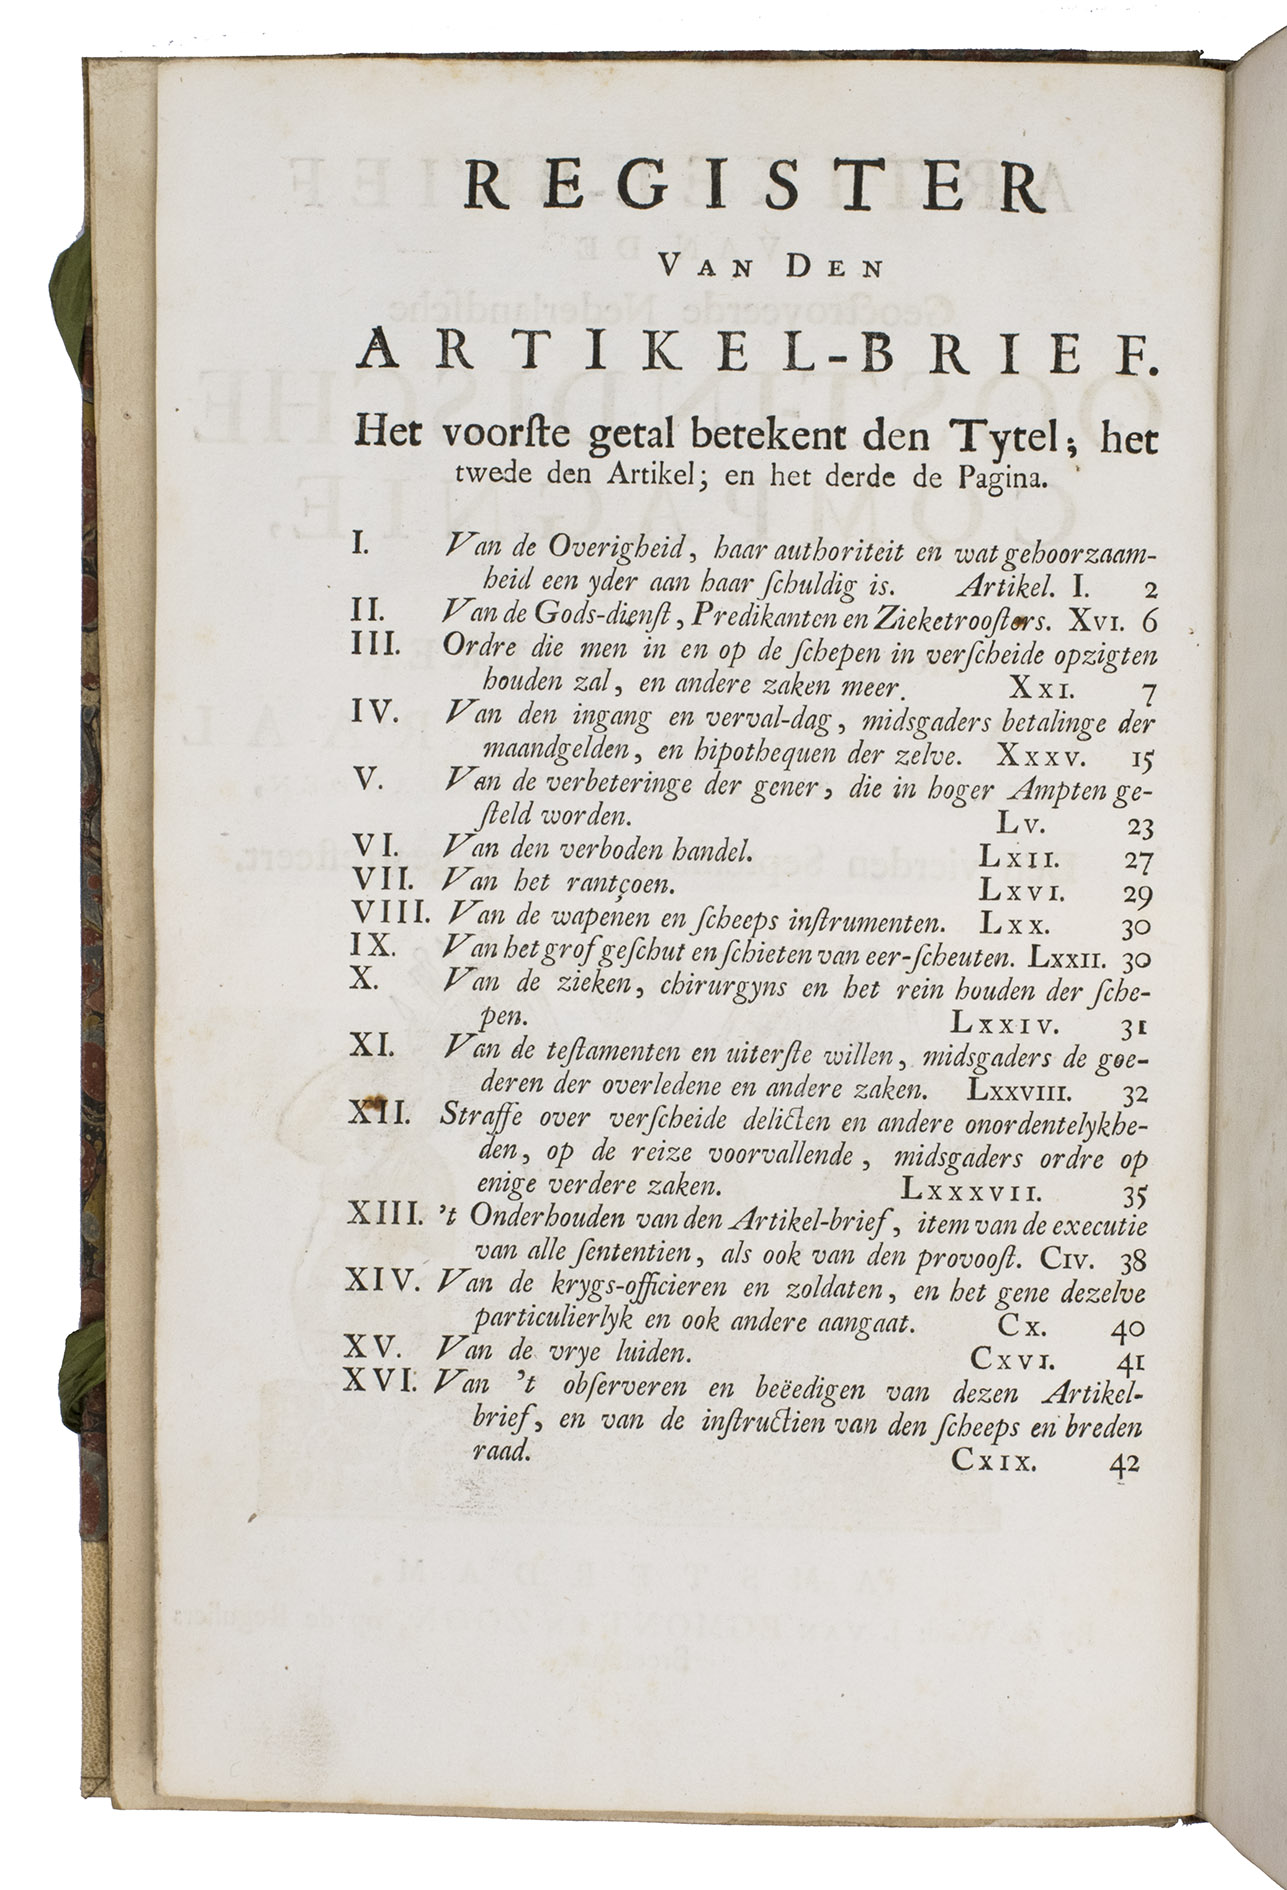 REGISTER
VAN DEN
ARTIKEL-BRIEF.
Het voorſte getal betekent den Tytel; het
twede den Artikel; en het derde de Pagina.
I. Van de Overigheid, haar authoriteit en wat gehoorzaam-
heid een yder aan haar ſchuldig is. Artikel. I. 2
II. Van de Gods-dienſt, Predikanten en Zieketrooſters. XVI. 6
III. Ordre die men in en op de ſchepen in verſcheide opzigten
houden zal, en andere zaken meer. XXI. 7
IV. Van den ingang en verval-dag, midsgaders betalinge der
maandgelden, en hipothequen der zelve. XXXV. 15
V. Van de verbeteringe der gener, die in hoger Ampten ge-
ſteld worden. LV. 23
VI. Van den verboden handel. LXII. 27
VII. Van het rantçoen. LXVI. 29
VIII. Van de wapenen en ſcheeps inſtrumenten. LXX. 30
IX. Van het grof geſchut en ſchieten van eer-ſcheuten. LXXII. 30
X. Van de zieken, chirurgyns en het rein houden der ſche-
pen. LXXIV. 31
XI. Van de teſtamenten en uiterſte willen, midsgaders de goe-
deren der overledene en andere zaken. LXXVIII. 32
XII. Straffe over verſcheide delicten en andere onordentelykhe-
den, op de reize voorvallende, midsgaders ordre op
enige verdere zaken. LXXXVII. 35
XIII. 't Onderhouden van den Artikel-brief, item van de executie
van alle ſententien, als ook van den provooſt. CIV. 38
XIV. Van de krygs-officieren en zoldaten, en het gene dezelve
particulierlyk en ook andere aangaat. CX. 40
XV. Van de vrye luiden. CXVI. 41
XVI. Van 't obſerveren en beëedigen van dezen Artikel-
brief, en van de inſtructien van den ſcheeps en breden
raad. CXIX. 42